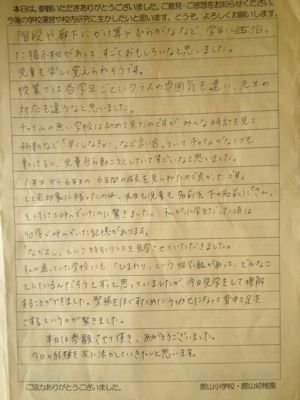 本日は、参観いただきありがとうございました。ご意見・ご感想をお知らせください。
今後の学校運営や校内研究に生かしたいと思います。どうぞ、よろしくお願いします。
階段や廊下にかけ算やひらがななど、学年に
た掲示物があって、すごくおもしろいなと思いました。
児童も楽しく覚えられそうです。
授業では各学年ごとにクラスの雰囲気も違い、先生の
対応も違うなと思いました。
チャイムの無い学校は初めて見たのですが、みんな時計を見て
行動など「早くしなきゃ」など言って、チャイムがなくても
動けるし、児童自ら動こうとしていてすごいなと思いました。
1年生から6年生の6年間の成長を見られたので良かったです。
とても印象に残ったのは、先生も児童も名前を下の名前に「さん」
を付けて呼んでいたのに驚きました。私が小学生だった頃は
名字で呼んでいた記憶があります。
「なかよし」という特別クラスを見学させていただきました。
私の通っていた学校にも「ひまわり」という組があって、どんなこと
としているんだろうと思っていましたが、今日見学をして理解
することができました。緊張をほぐすためにうつぶせになって背中や足を
さするというのが驚きました。
本日は参観させて頂き、ありがとうございました。
今日の経験を次に活かしていきたいと思います。
ご協力ありがとうございました。
館山小学校・館山幼稚園